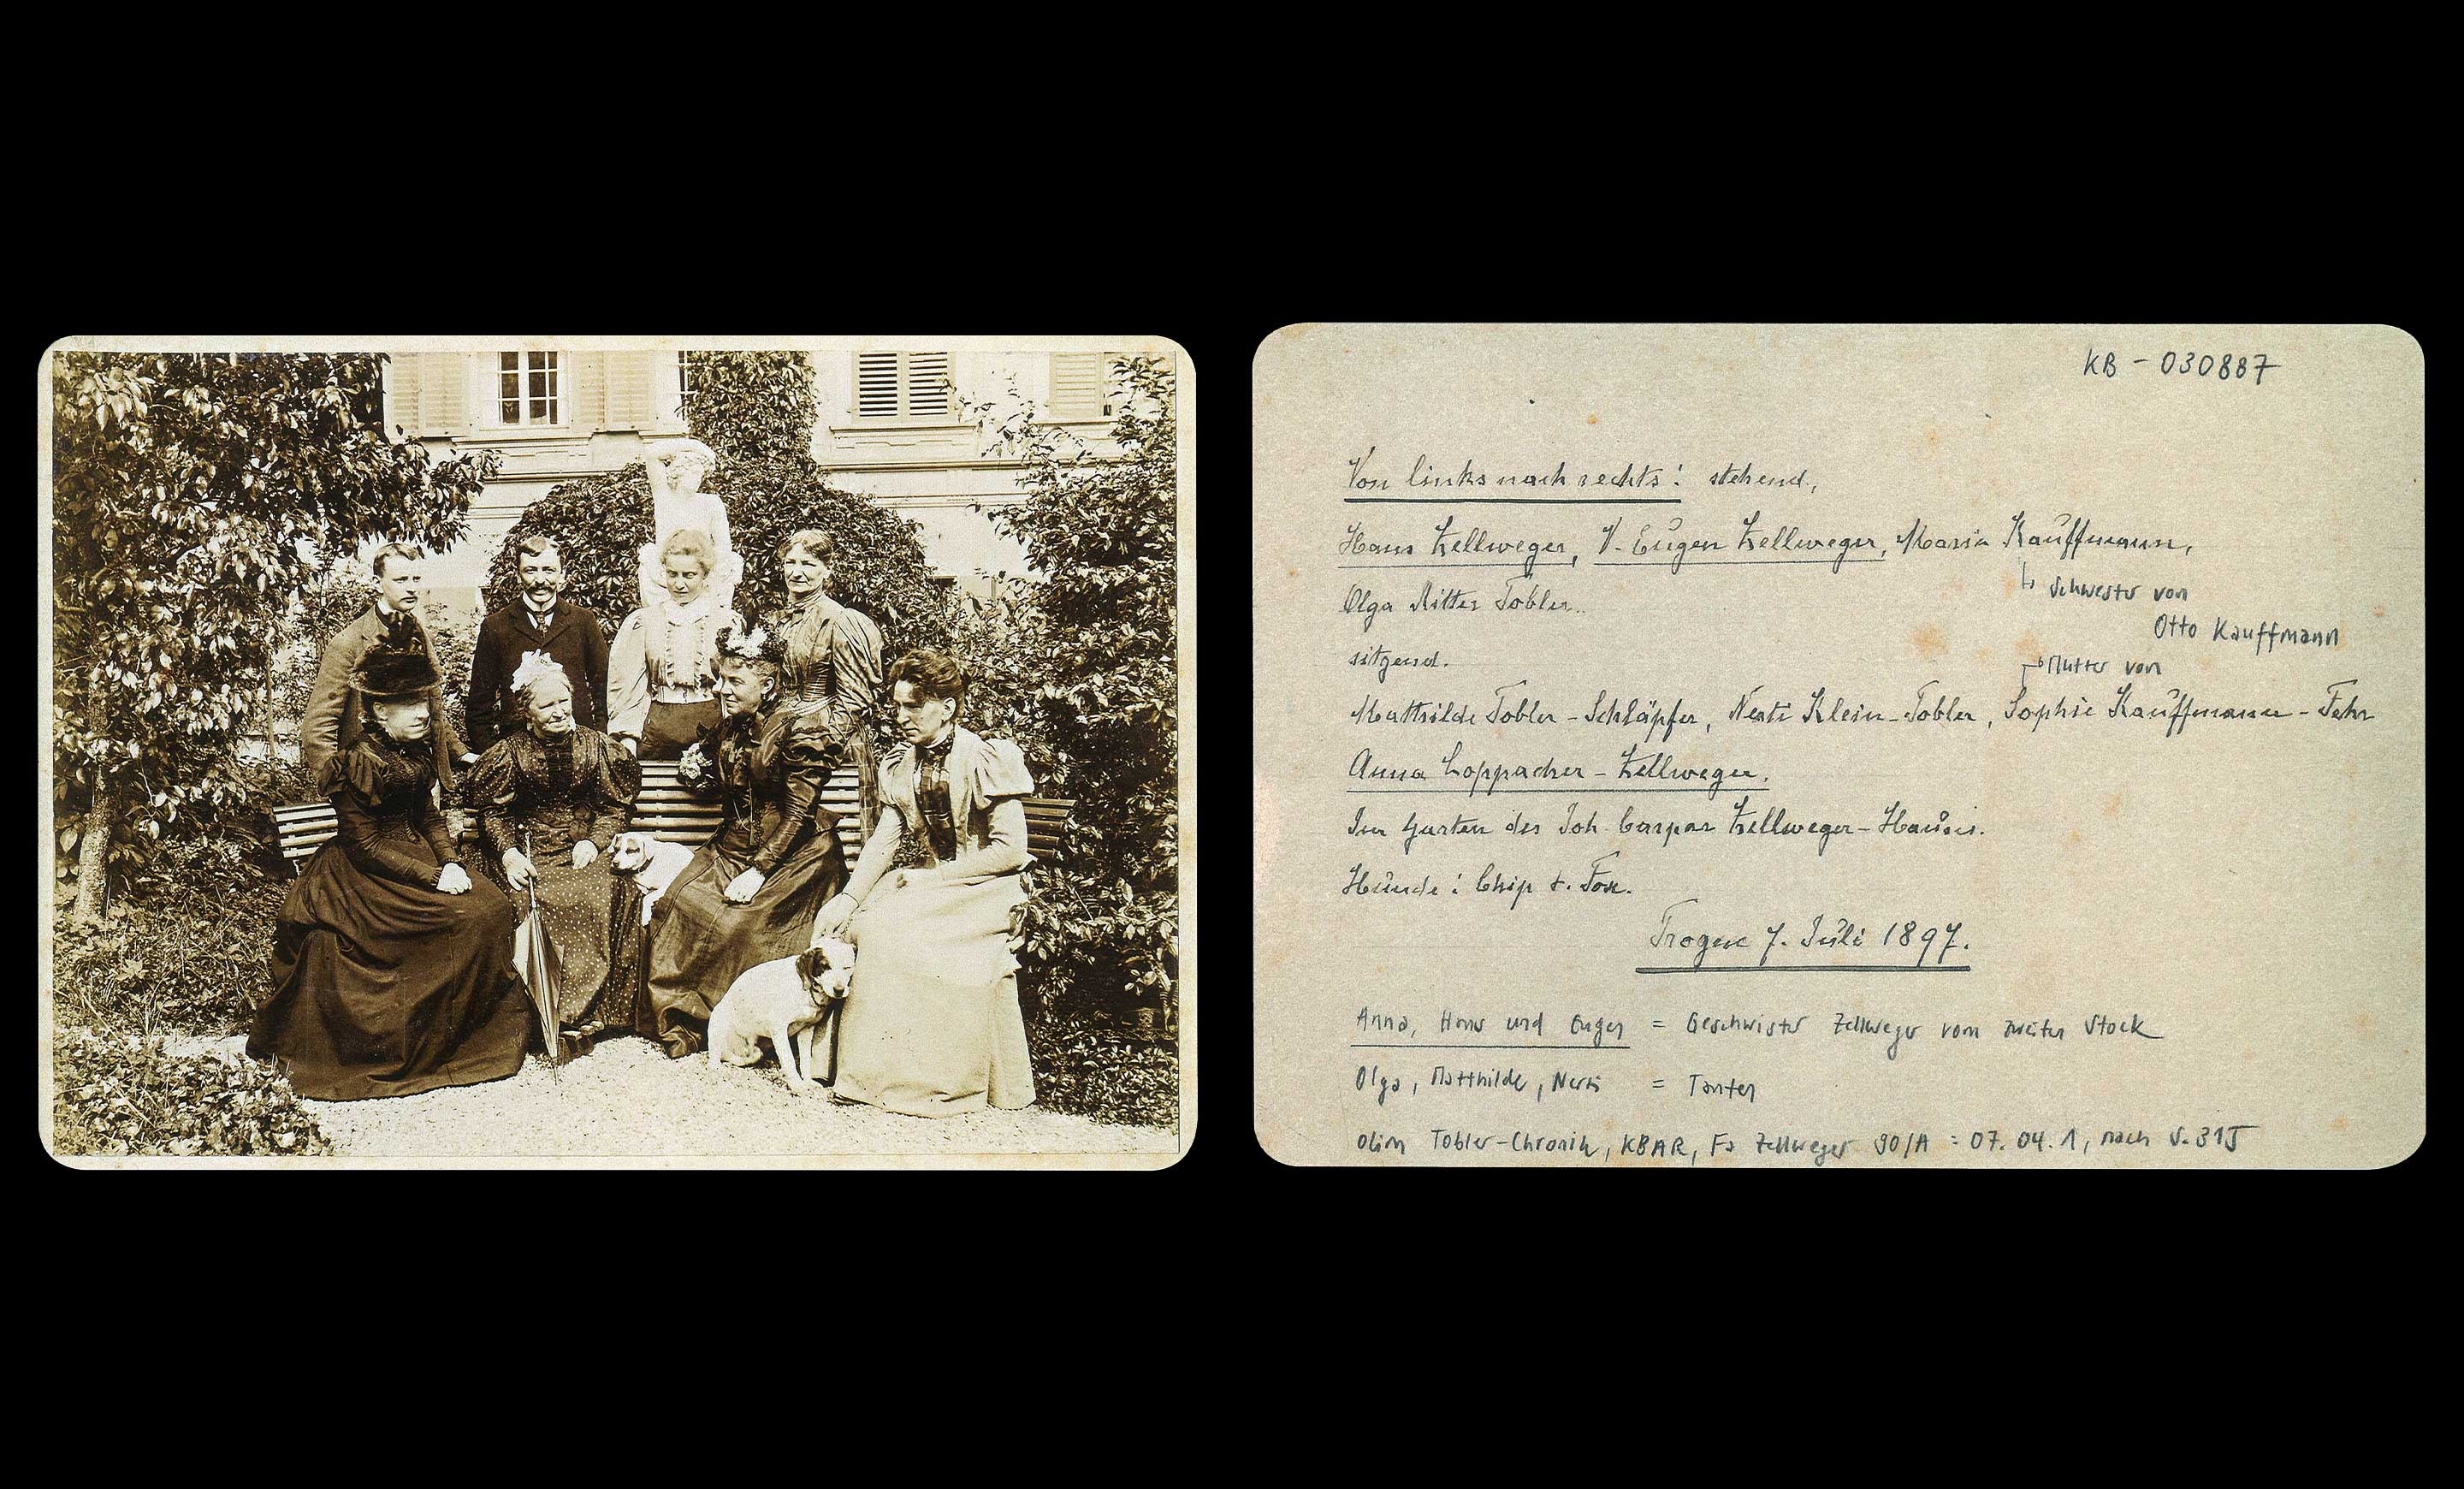 KB - 030887
Von links nach rechts: stehend,
Hans Zellweger, V. Eugen Zellweger, Maria Kauffmann,
↳ Schwester von
Otto Kauffmann
Olga Ritter Tobler.
sitzend.
Mutter von
Matthilde Tobler - Schläpfer, Nesti Klein - Tobler, Sophie Kauffmann - Fehr
Anna Loppacher - Zellweger.
Im Garten des Joh. Caspar Zellweger - Hauses.
Hunde: Chip &. Fox.
Trogen 7. Juli 1897.
Anna, Hans und Eugen = Geschwister Zellweger vom zweiten Stock
Olga, Matthilde, Nesti = Tanten
olim Tobler-Chronik, KBAR, Fa Zellweger 90/A : 07. 04. 1, nach S. 315